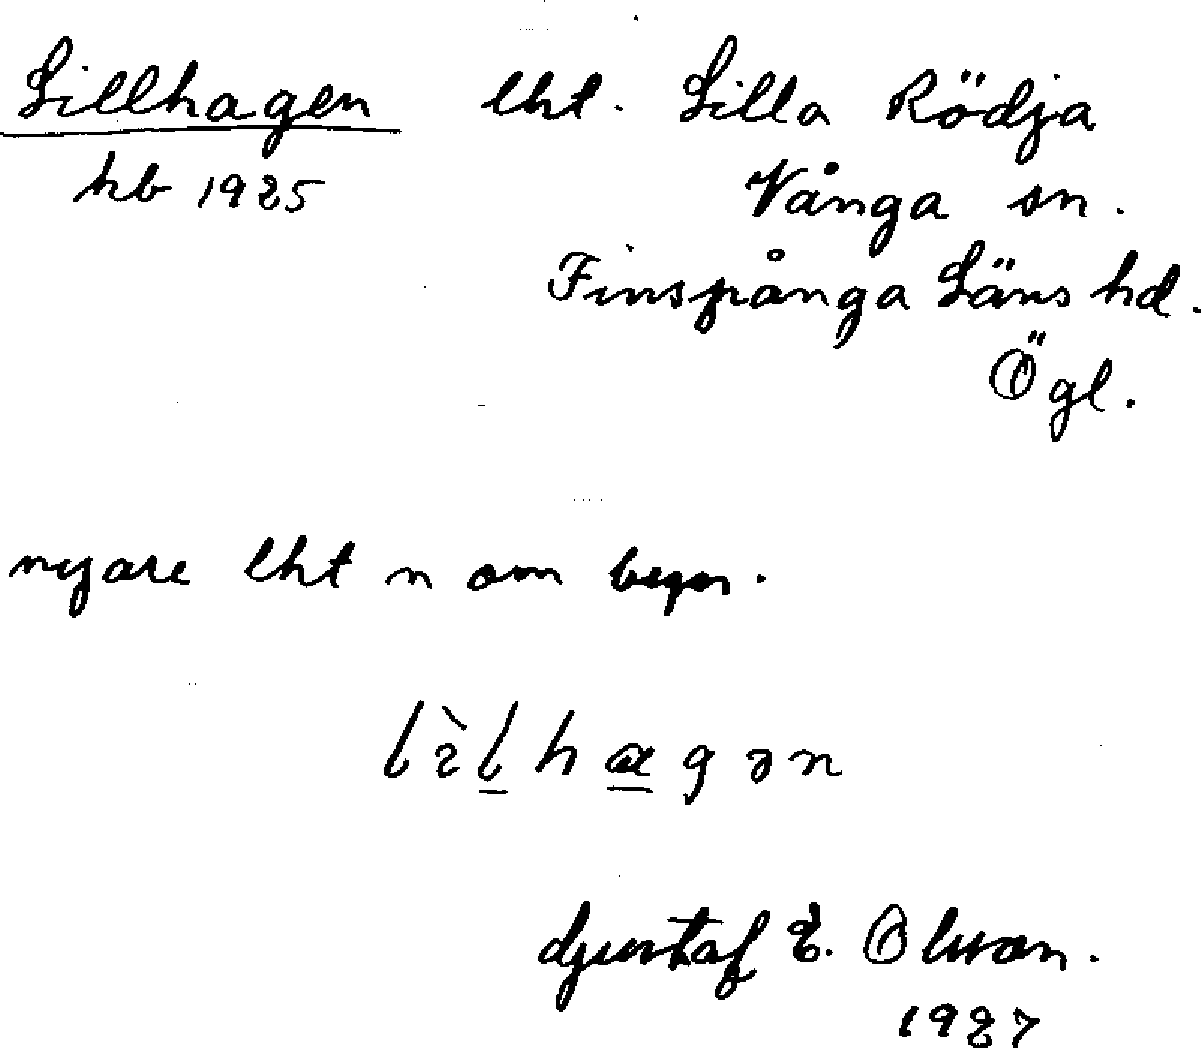 Lillhagen lht. Lilla Rödja
hb 1925 Vånga sn.
Finspånga Läns hd.
Ögl.
nyare lht n om
lìlhagən
Gustaf E. Olsson.
1927